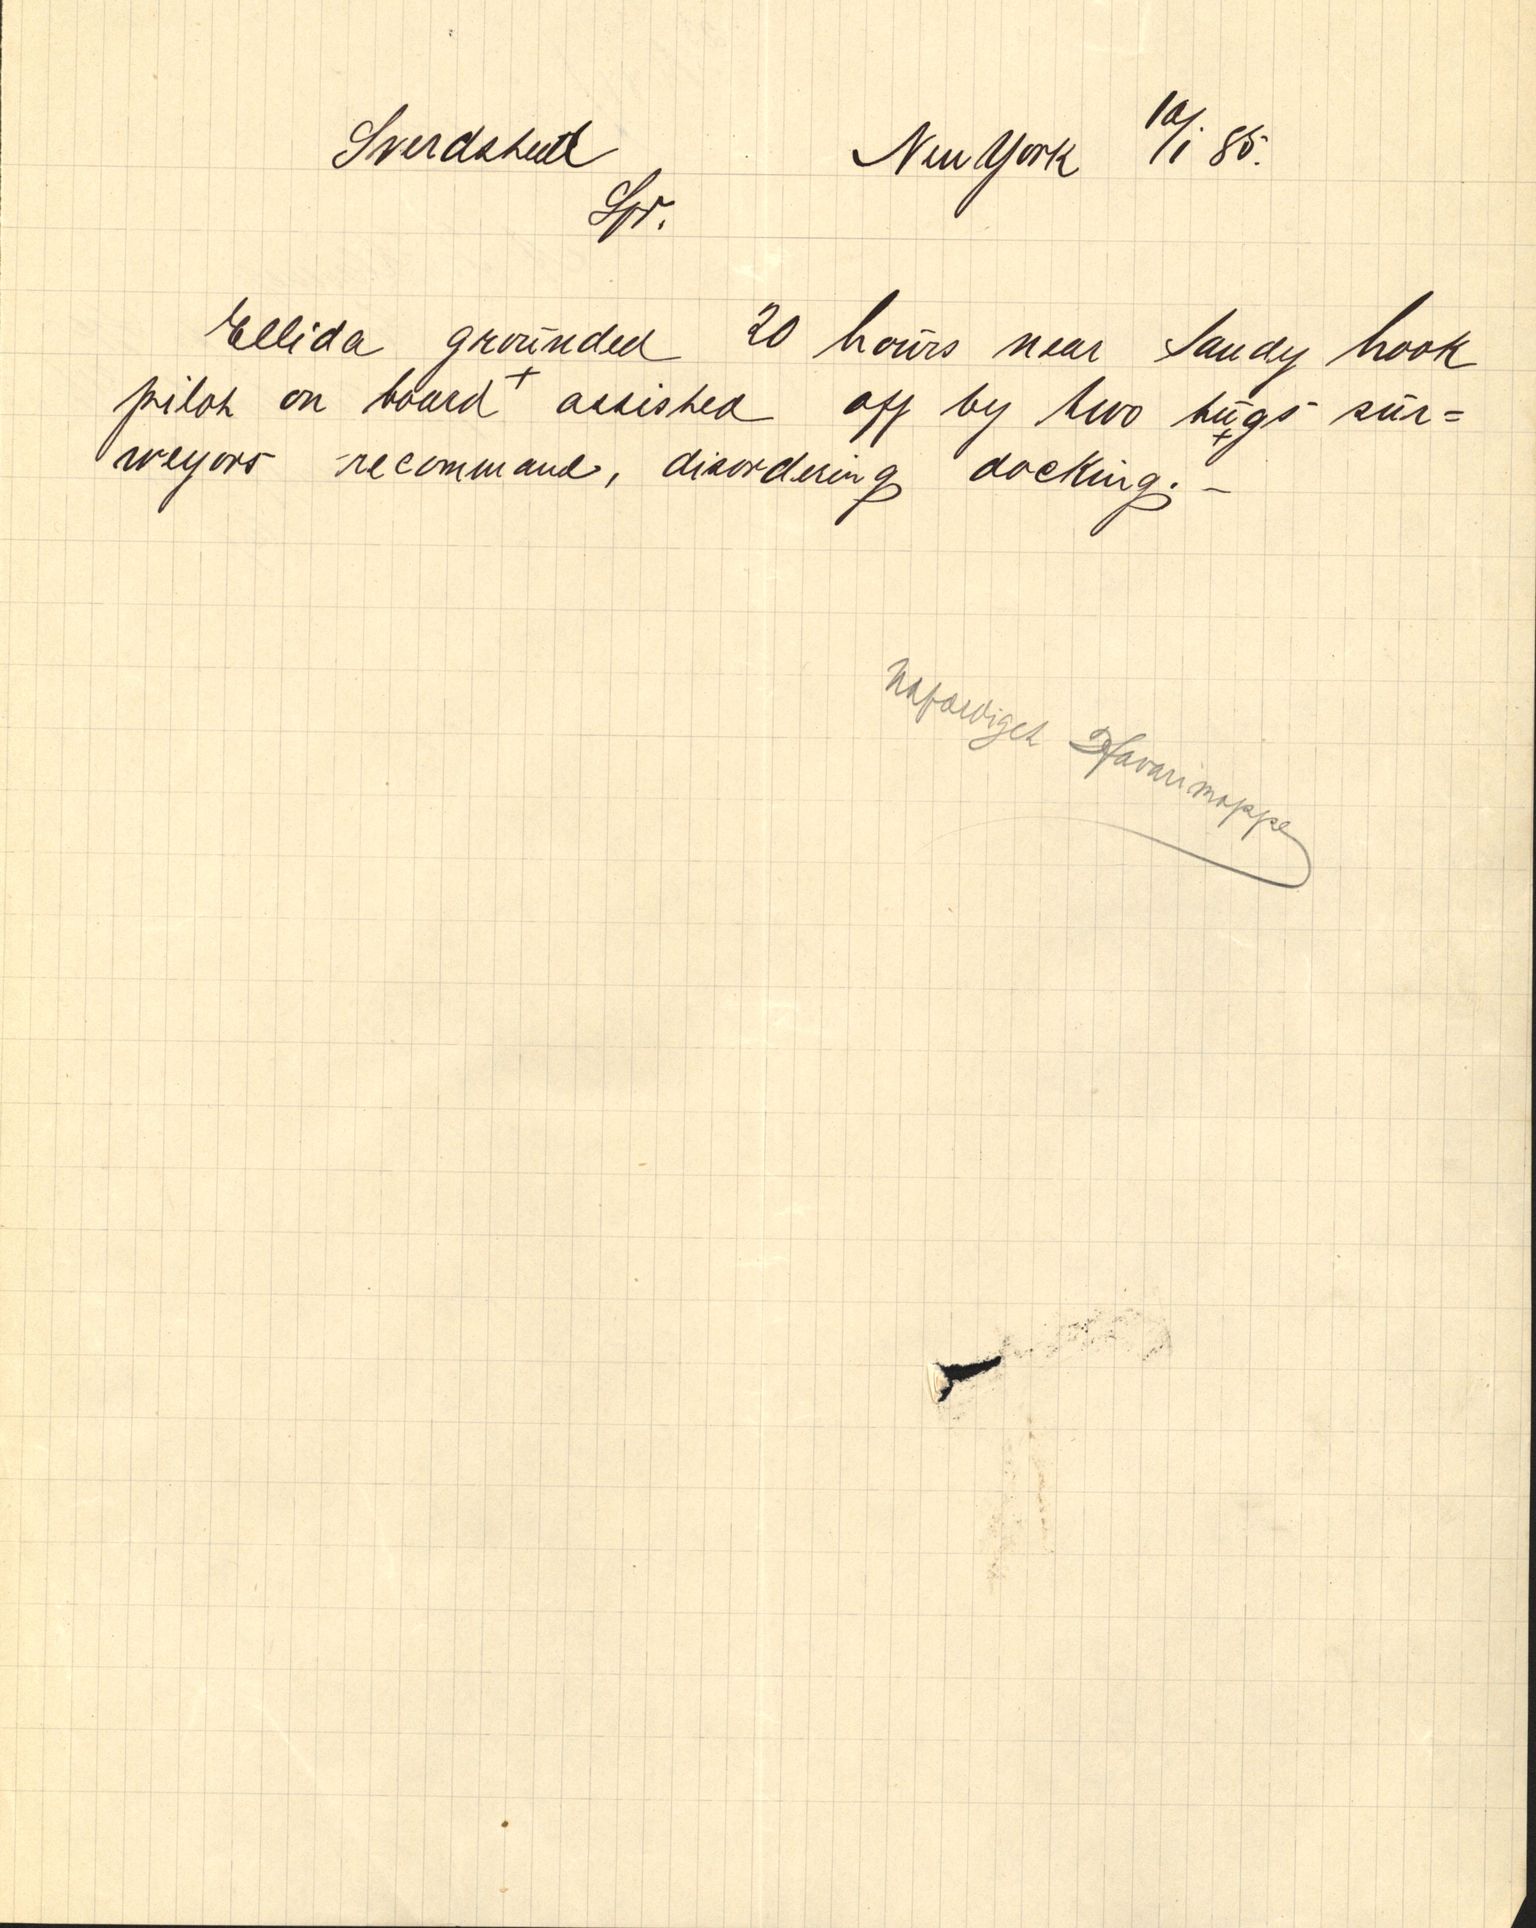 Sverdsted New York 10/1 85.
Spr.
Ellida grounded 20 hours near Sandy hook
pilot on board + assisted off by two tugs + sur=
weyors recommand, disordering docking. —
Uafærdiget Havarimappe